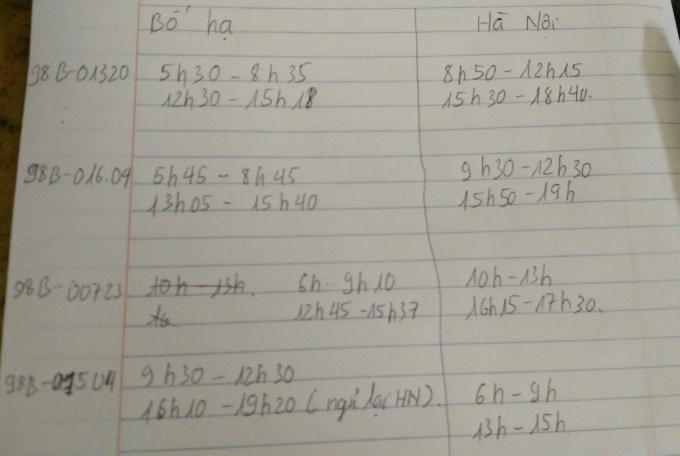 Bố hạ Hà Nội
98B-01320 5h30 - 8h35 8h50 - 12h15
12h30 - 15h18 15h30 - 18h40.
98B-016.04 5h45 - 8h45 9h30 - 12h30
13h05 - 15h40 15h50 - 19h
98B-00723 10h - 13h. 6h - 9h10 10h - 13h
12h45 - 15h37 16h15 - 17h30.
9h30 - 12h30
16h10 - 19h20 (ngủ lại HN). 6h - 9h
13h - 15h